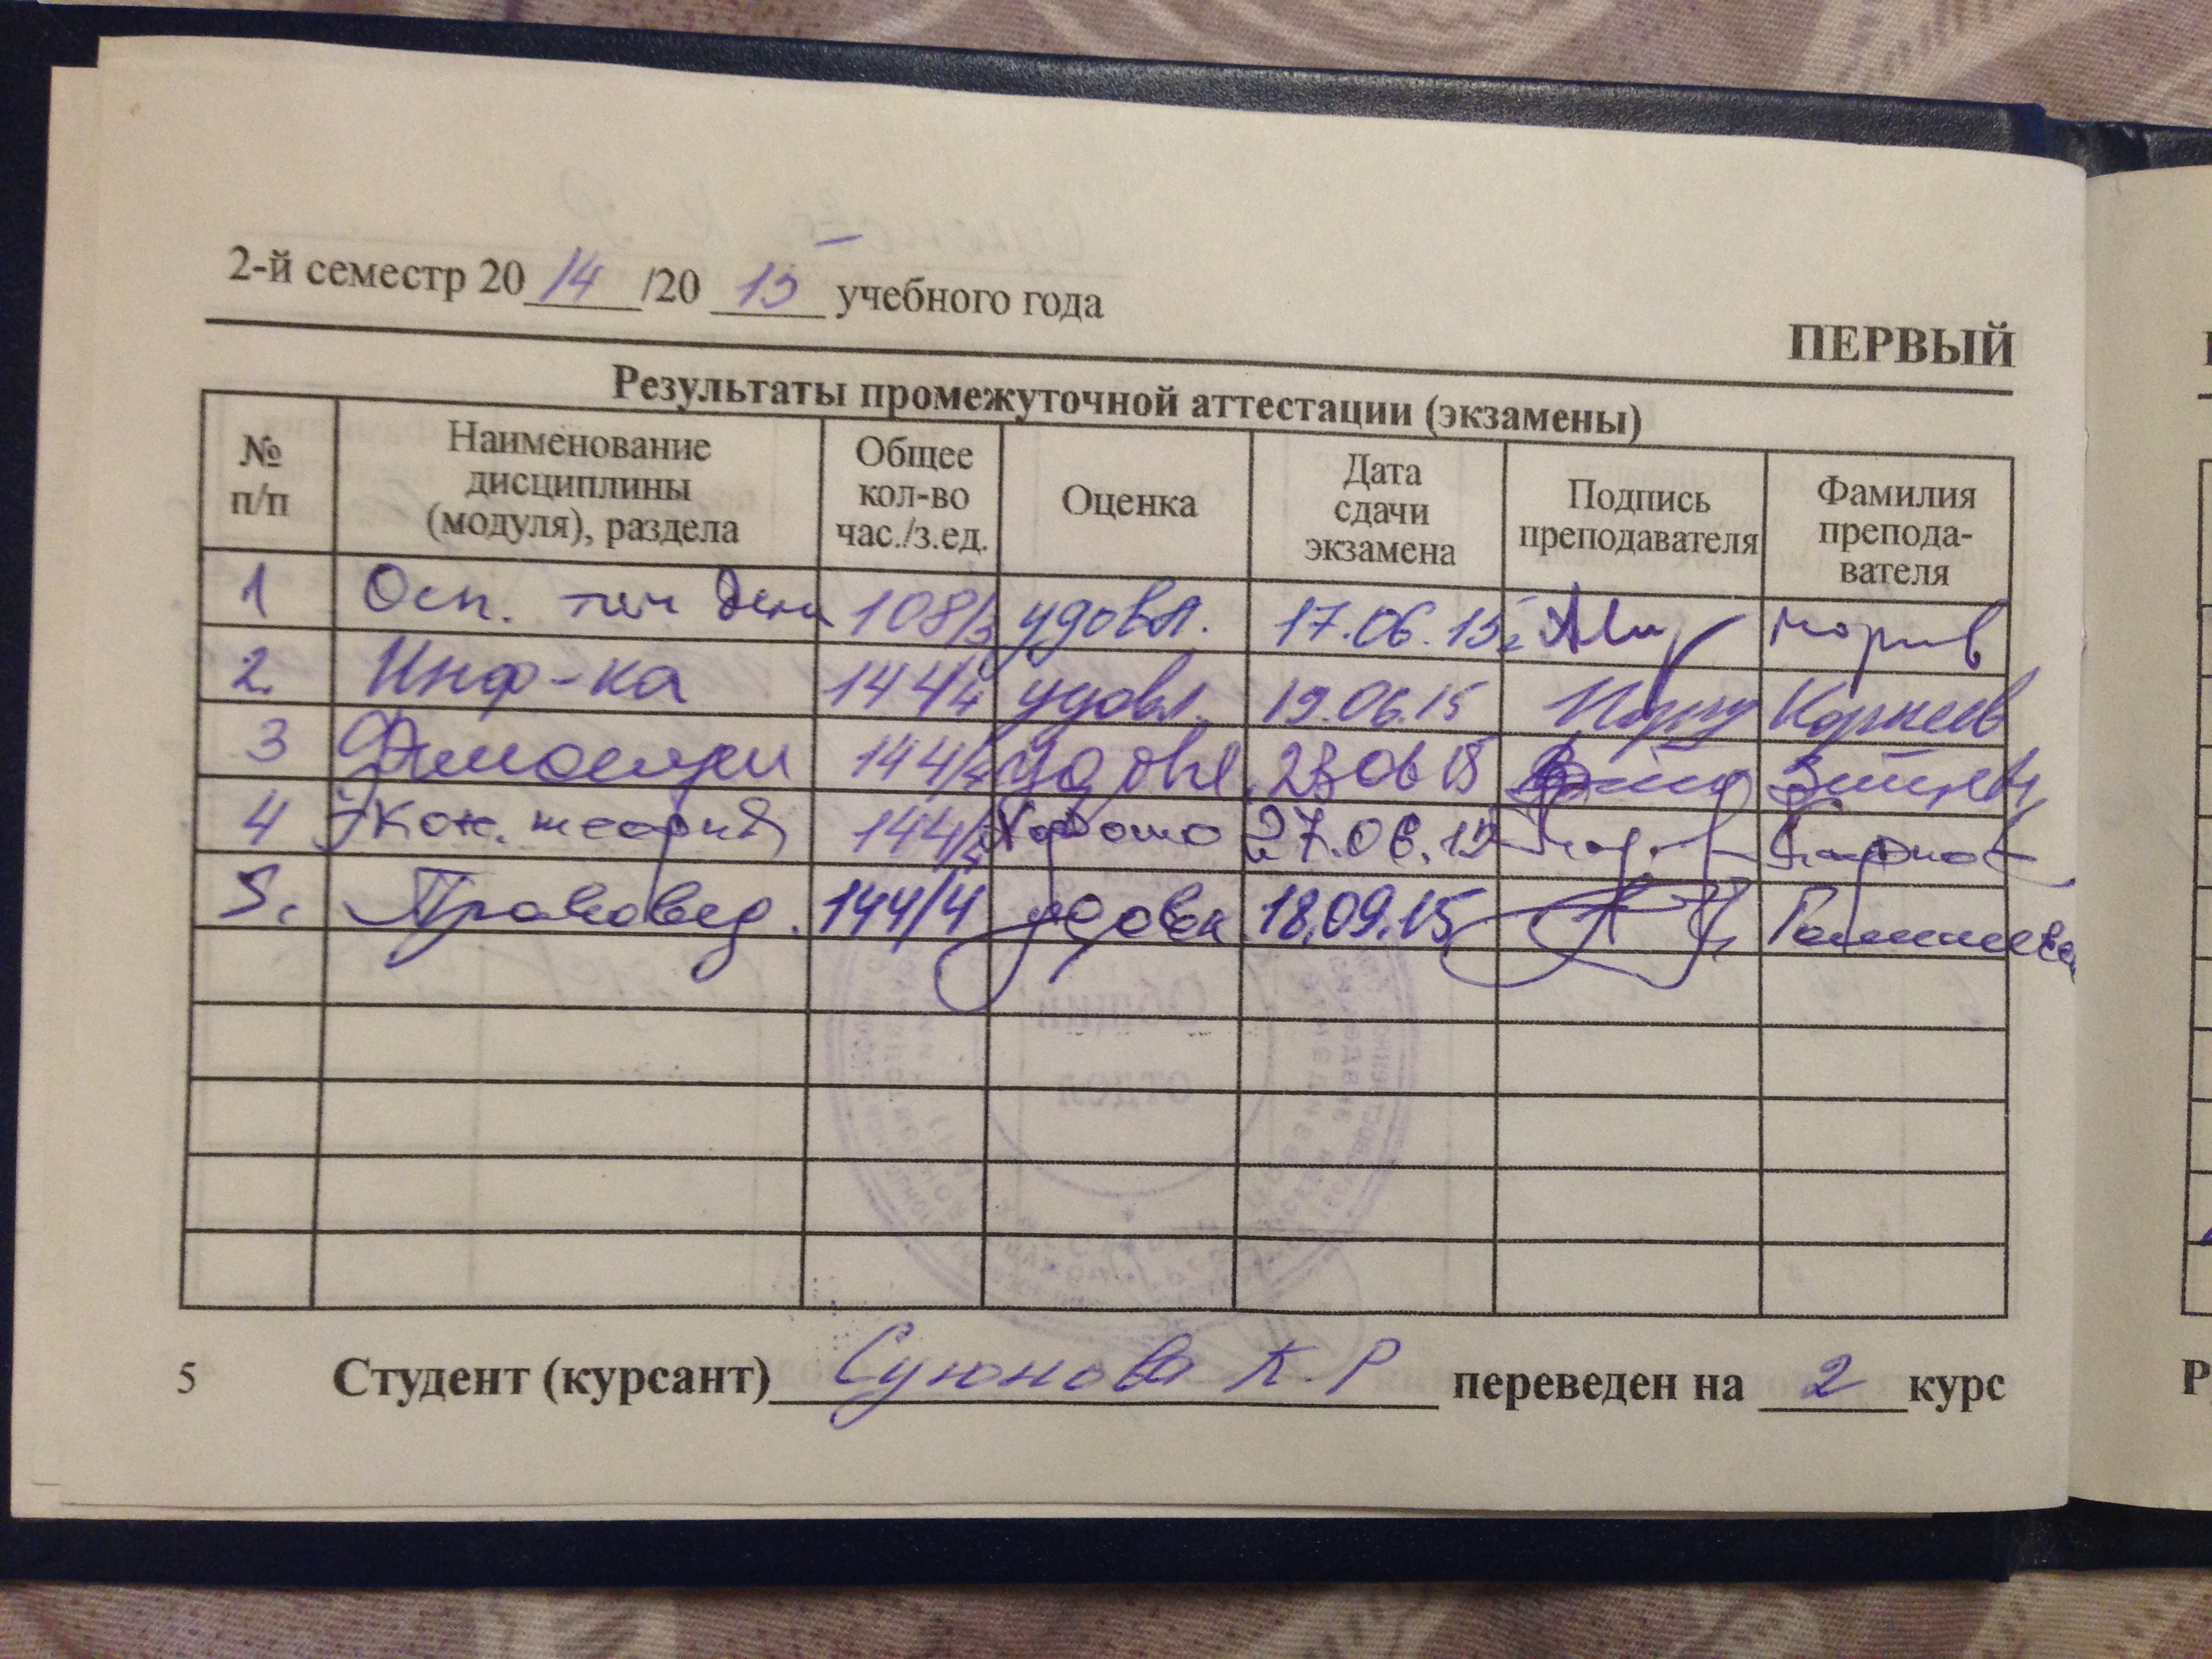 2-й семестр 20 14 /20 15 учебного года
ПЕРВЫЙ
Результаты промежуточной аттестации (экзамены)
№ п/п Наименование дисциплины (модуля), раздела Общее кол-во час./з.ед. Оценка Дата сдачи экзамена Подпись преподавателя Фамилия препода-вателя
1 108/3 удовл. 17.06.15г
2. Инф-ка 144/4 удовл. 19.06.15 Корнеев
3 144/4 удовл. 23 06 15
4 Экон. теория 144/4 Хорошо 27.06.15
5. Правовед. 144/4 удовл. 18.09.15
5 Студент (курсант) Суюнова К.Р переведен на 2 курс